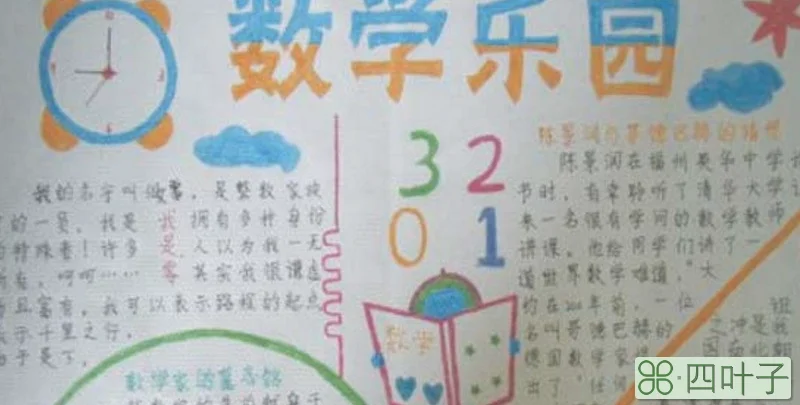 数学乐园
3 2
0 1
我的名字叫做零，是整数家族
的一员，我是 我 拥有多种身份
的特殊者！许多 是 人以为我一无
所有，呵呵…… 零 其实我很谦虚
且富有，我可以表示路程的起点
示千里之行，
于足下。
数学家
陈景润与哥德巴赫的猜想
陈景润在福州英华中学
书时，有幸聆听了清华大学
来一名很有学问的数学教师
讲课。他给同学们讲了一
道世界数学难道。"大
约在200年前，一位
名叫哥德巴赫的
德国数学家
出了"任何
数学
四叶子